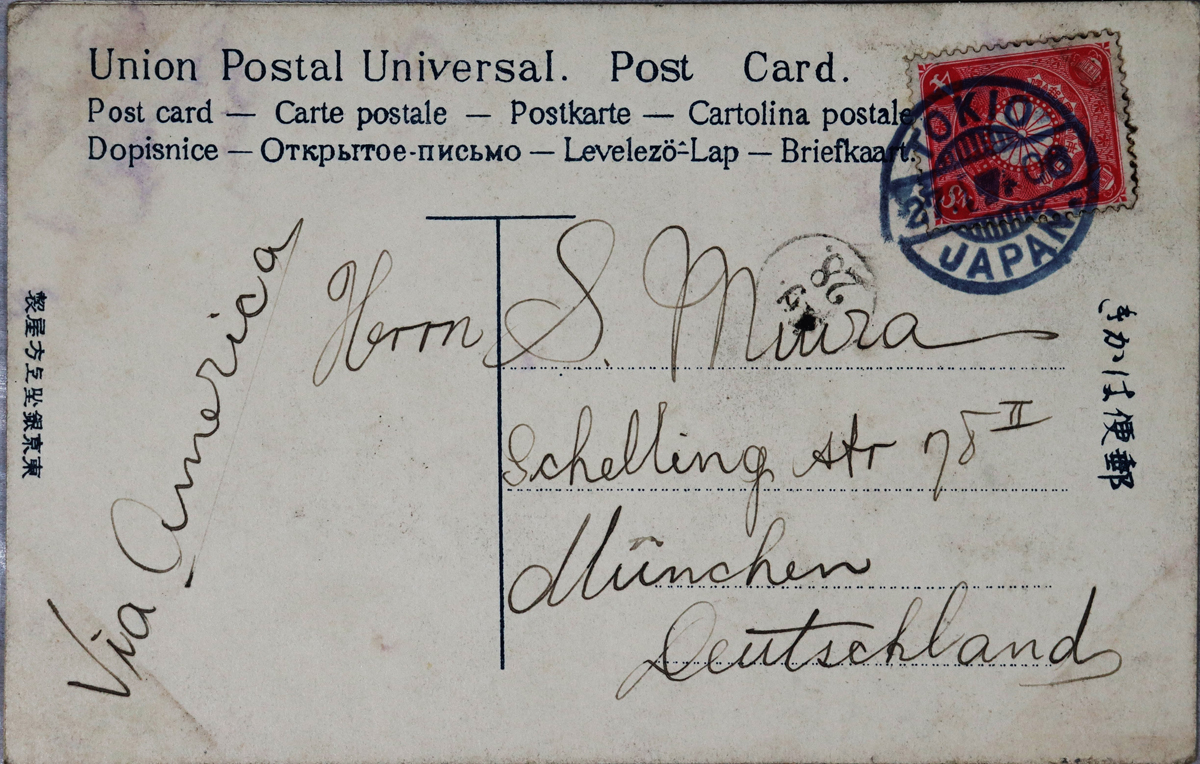 Union Postal Universal. Post Card.
Post card — Carte postale — Postkarte — Cartolina postale
Dopisnice — Открытое-письмо — Levelezö-Lap — Briefkaart.
TOKIO
JAPAN
28
Via America
Herrn S. Miura
Schelling str 78 II
München
Deutschland
きかは便郵
製屋方上坐銀京東